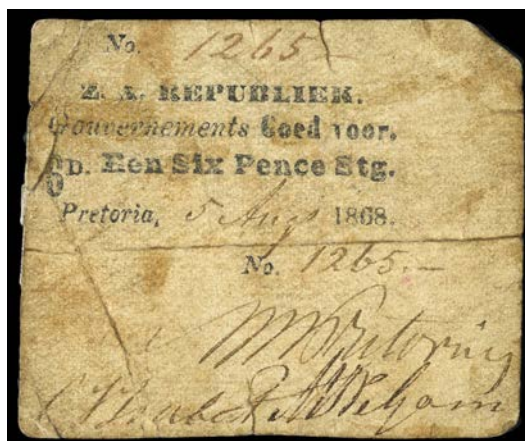 No. 1265.-
Z. A. REPUBLIEK.
Gouvernements Goed voor.
6D. Een Six Pence Stg.
Pretoria, 5 Aug 1868.
No. 1265.-
M W Pretorius